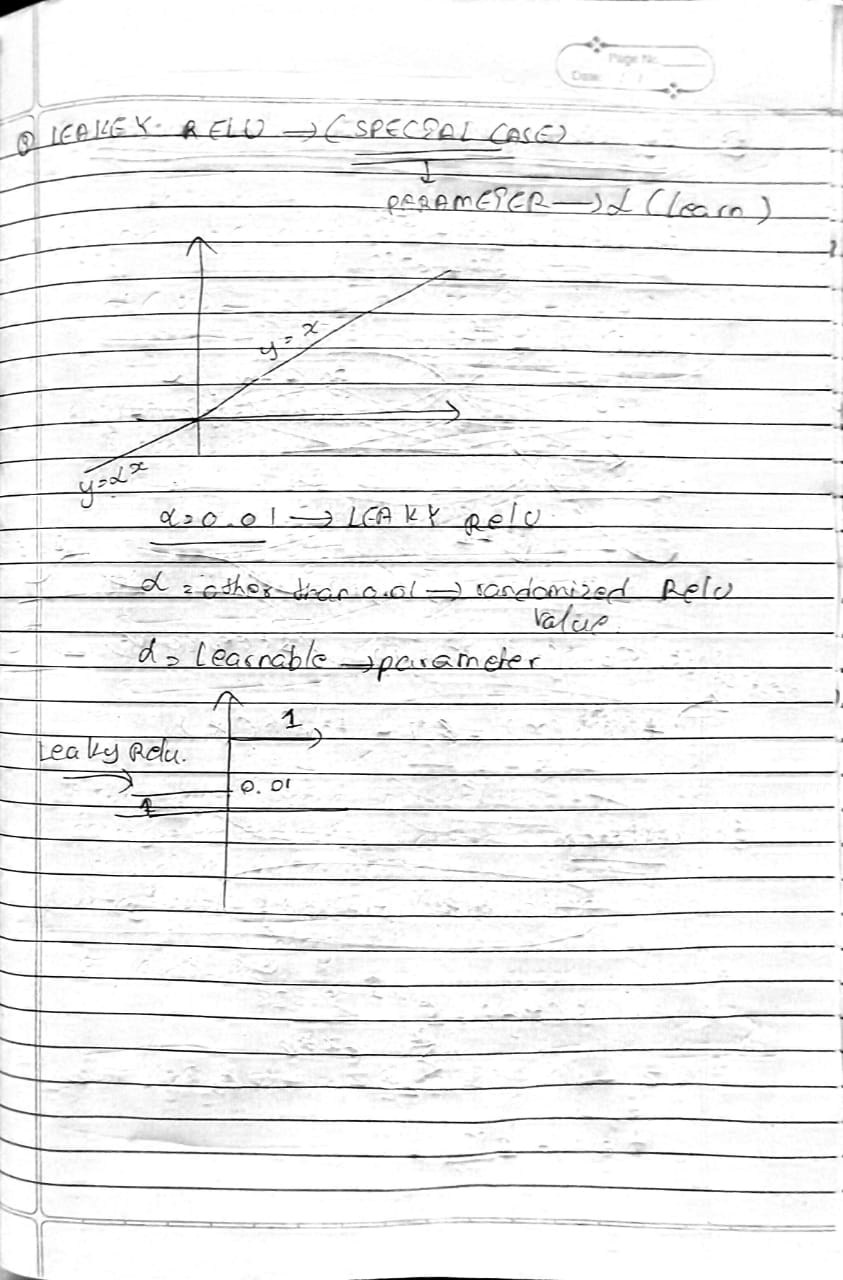 Page No.
Date: / /
⑧ LEAKEY RELU → (SPECIAL CASE)
↓
PARAMETER → α (learn)
y = x
y = αx
α = 0.01 → LEAKY RelU
α = other than 0.01 → randomized RelU
value
α = Learnable → parameter
1
Leaky Relu.
0.01